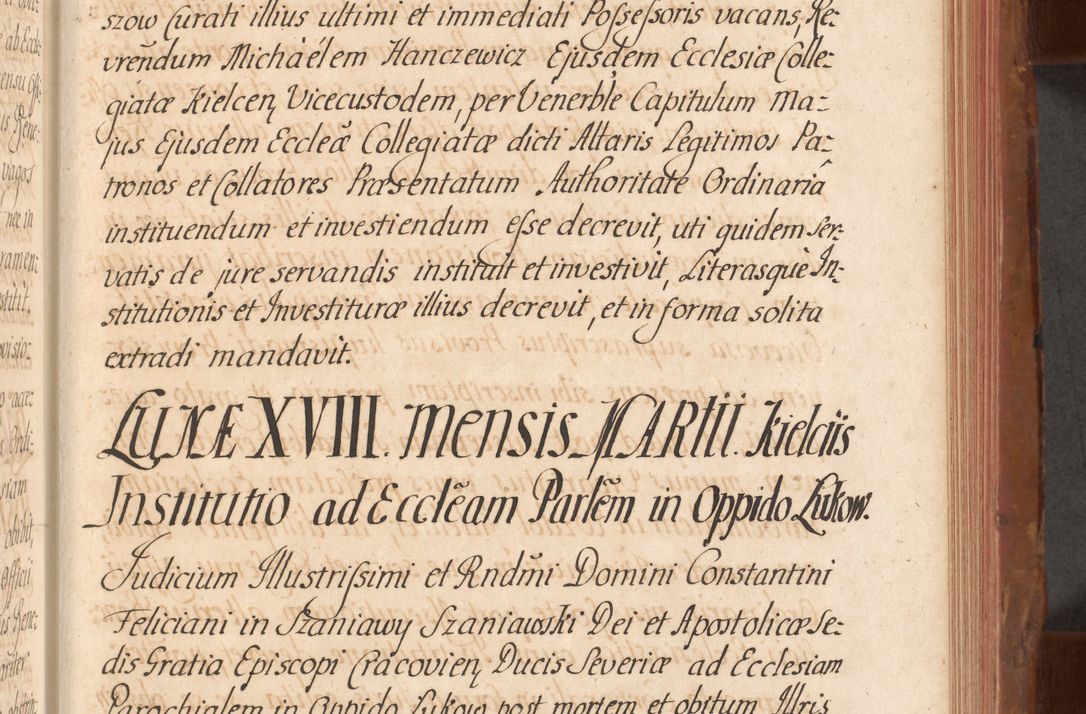 szow Curati illius ultimi et immediati Possessoris vacans, Re-
vrendum Michaelem Hanczewicz Ejusdem Ecclesiæ Colle-
giatæ Kielcen, Vicecustodem, per Venerble Capitulum Ma-
jus Ejusdem Eccleæ Collegiatæ dicti Altaris Legitimos Pa-
tronos et Collatores Præsentatum Authoritate Ordinariâ
instituendum et investiendum esse decrevit, uti quidem ser-
vatis de jure servandis instituit et investivit, Literasquè In-
stitutionis et Investituræ illius decrevit, et in forma solita
extradi mandavit.
LUNÆ XVIII. Mensis MARtii. Kielciis
Institutio ad Ecclẽam Parlẽm in Oppido Lukow.
Judicium Illustrissimi et Rndm̃i Domini Constantini
Feliciani in Szaniawy Szaniawski Dei et Apostolicæ Se-
dis Gratia Episcopi Cracovien, Ducis Severiæ ad Ecclesiam
Parochialem in Oppido Lukow post mortem et obitum Illris